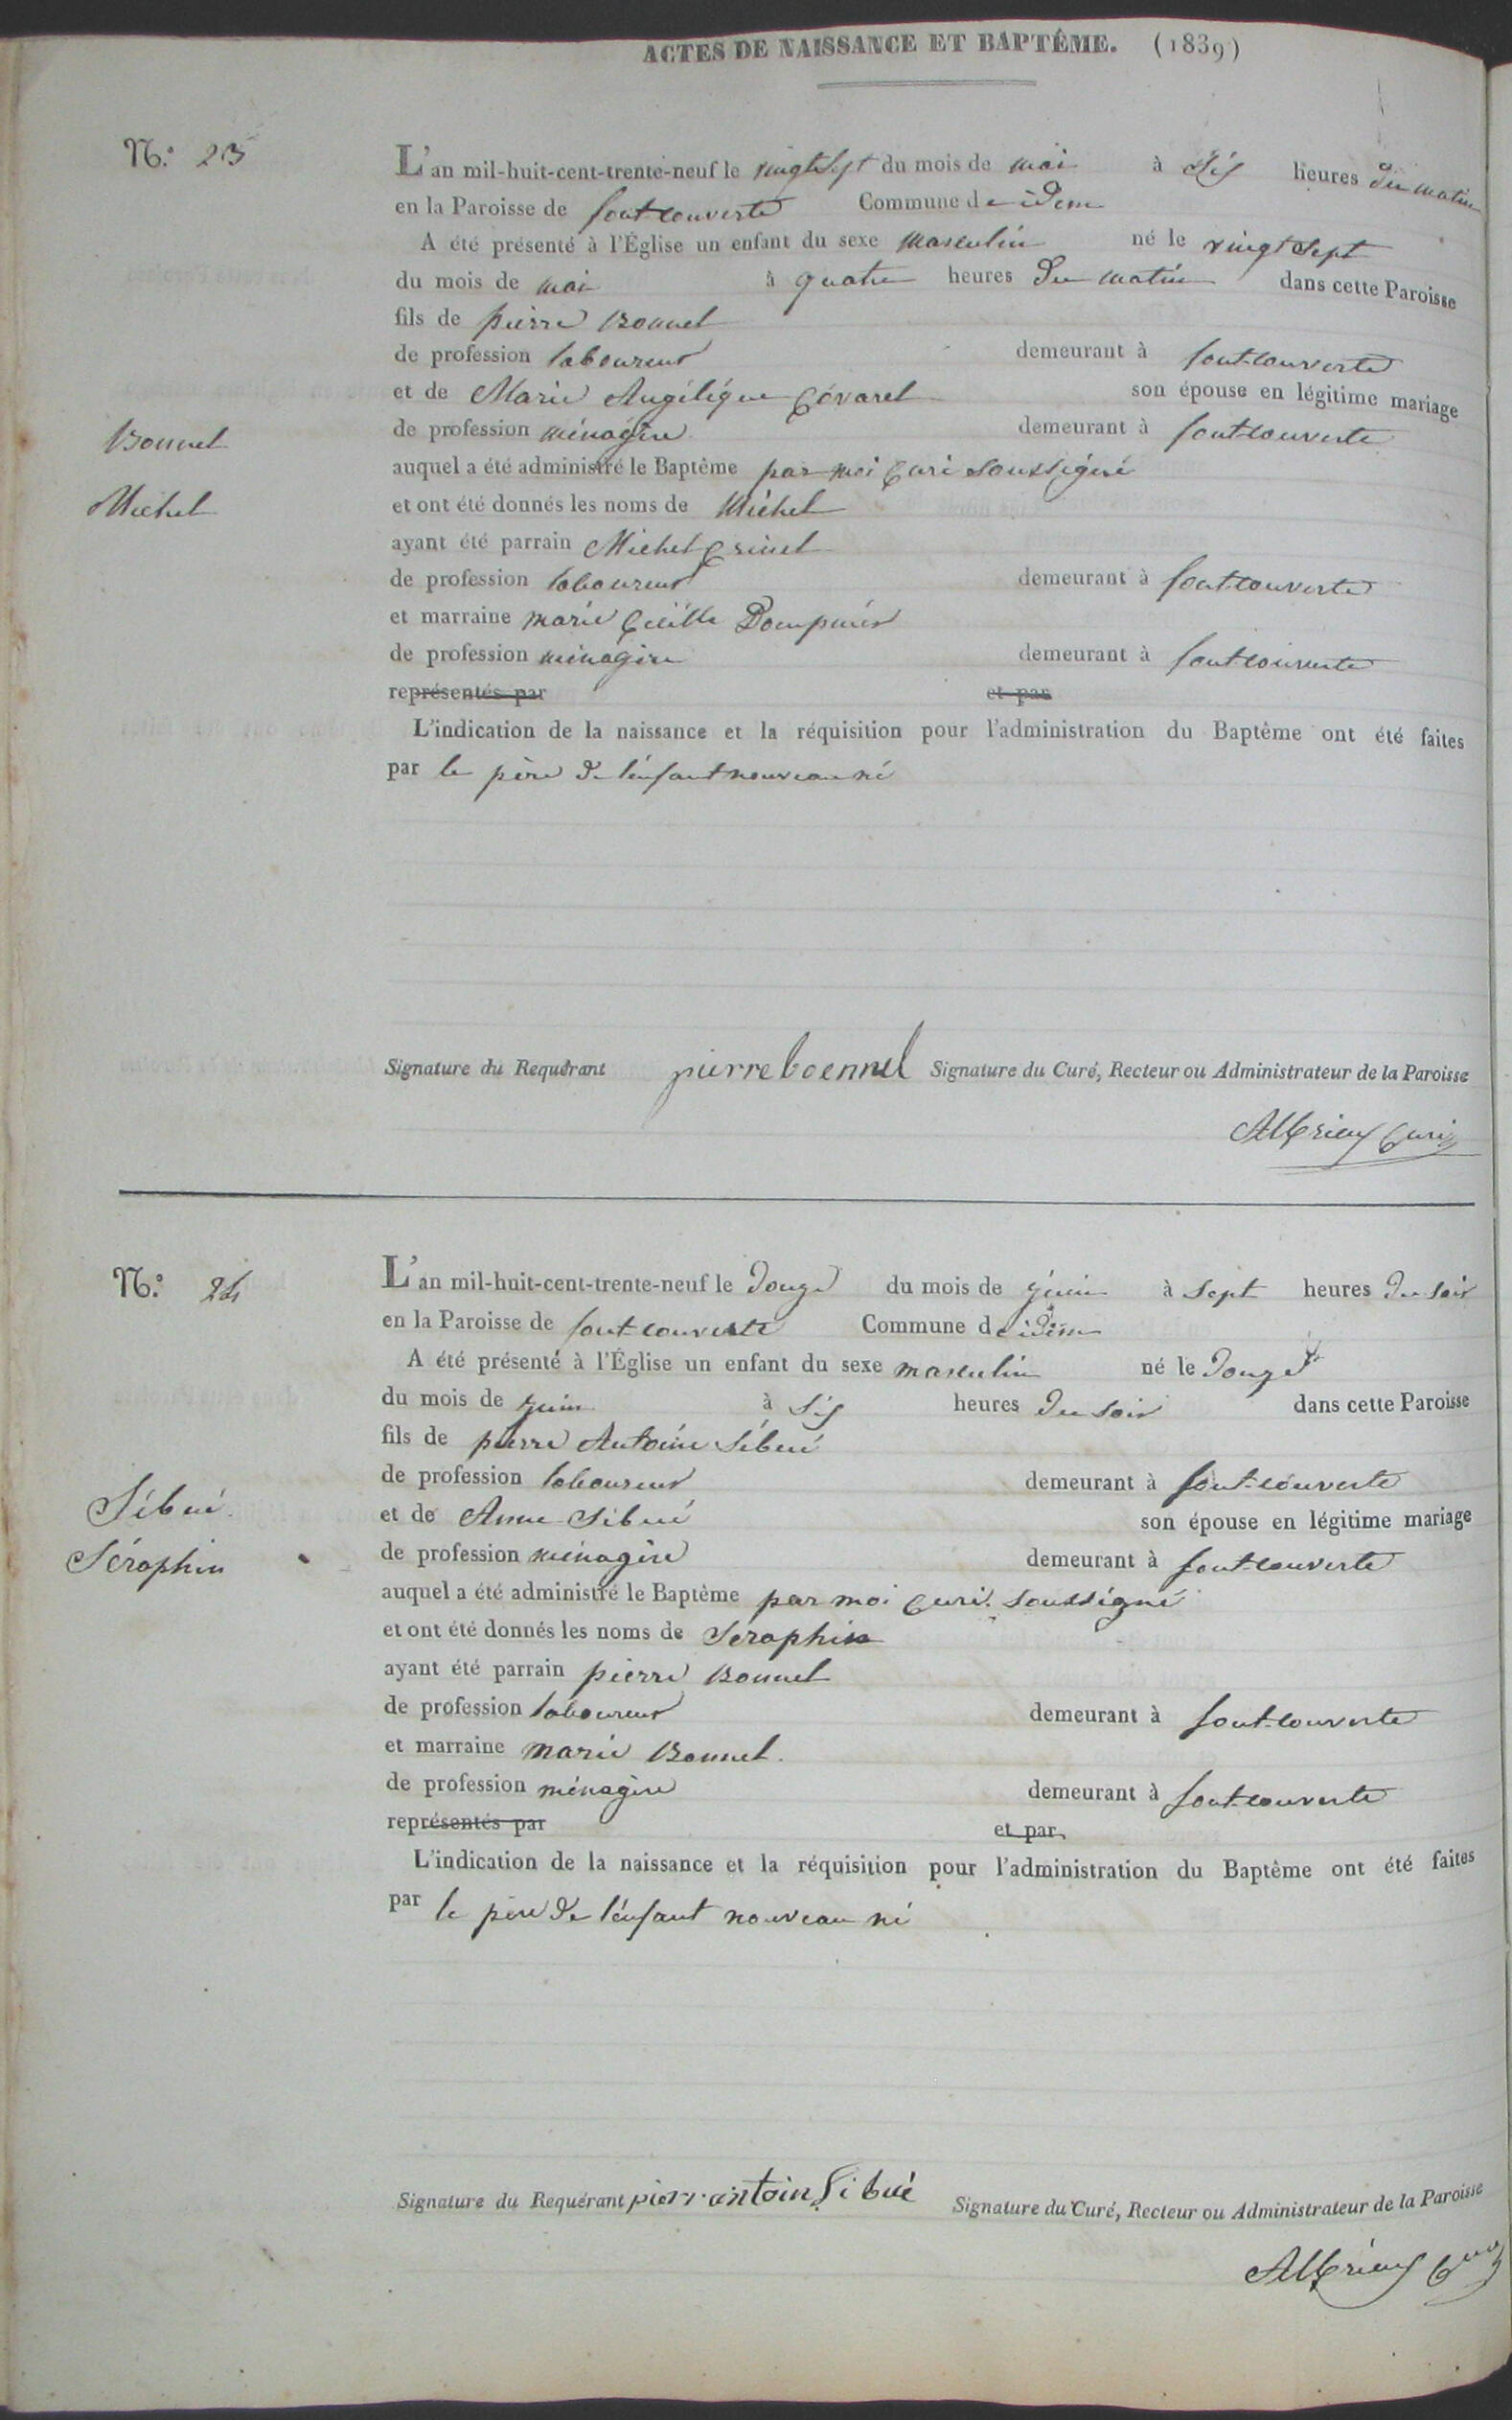 ACTES DE NAISSANCE ET BAPTÊME. (1839)
N.º 23
L'an mil-huit-cent-trente-neuf le vingt sept du mois de mai à six heures du matin
en la Paroisse de fontcouverte Commune de idem
A été présenté à l'Église un enfant du sexe masculin né le vingt sept
du mois de mai à quatre heures du matin dans cette Paroisse
fils de pierre Bonnel
de profession laboureur demeurant à font-couverte
et de Marie Angélique Covarel son épouse en légitime mariage
Bonnel
de profession ménagère demeurant à font-couverte
auquel a été administré le Baptême par moi Curé soussigné
Michel
et ont été donnés les noms de Michel
ayant été parrain Michel
de profession laboureur demeurant à font-couverte
et marraine marie
de profession ménagère demeurant à font-couverte
représentés par et par
L'indication de la naissance et la réquisition pour l'administration du Baptême ont été faites
par le père de l'enfant nouveau né
Signature du Requérant pierre boennel Signature du Curé, Recteur ou Administrateur de la Paroisse
Albrieux Curé
N.º 24
L'an mil-huit-cent-trente-neuf le douze du mois de juin à sept heures du soir
en la Paroisse de font-couverte Commune de idem
A été présenté à l'Église un enfant du sexe masculin né le douze
du mois de juin à six heures du soir dans cette Paroisse
fils de pierre Antoine Sibué
de profession laboureur demeurant à font-couverte
Sibué
et de Anne Sibué son épouse en légitime mariage
Séraphin
de profession ménagère demeurant à font-couverte
auquel a été administré le Baptême par moi Curé soussigné
et ont été donnés les noms de Seraphin
ayant été parrain pierre Bonnel
de profession laboureur demeurant à font-couverte
et marraine marie Bonnel
de profession ménagère demeurant à font-couverte
représentés par et par
L'indication de la naissance et la réquisition pour l'administration du Baptême ont été faites
par le père de l'enfant nouveau né
Signature du Requérant pierr antoin Sibué Signature du Curé, Recteur ou Administrateur de la Paroisse
Albrieux Curé